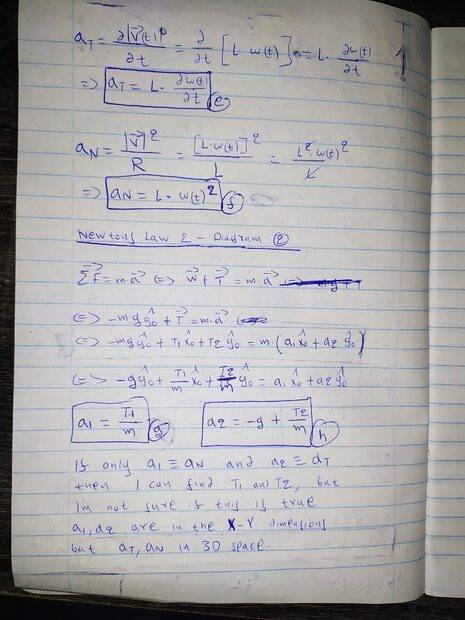 a_T = ∂|V⃗(t)|/∂t = ∂/∂t [L · ω(t)] = L · ∂ω(t)/∂t
=> a_T = L · ∂ω(t)/∂t (e)
a_N = |V⃗|²/R = [L·ω(t)]²/L = L²·ω(t)²/L
=> a_N = L · ω(t)² (f)
Newtons Law 2 - Diagram (2)
ΣF⃗ = m·a⃗ <=> W⃗ + T⃗ = m·a⃗
<=> -m·g ŷ₀ + T⃗ = m·a⃗
<=> -mg ŷ₀ + T₁ x̂₀ + T₂ ŷ₀ = m·(a₁ x̂₀ + a₂ ŷ₀)
<=> -g ŷ₀ + T₁/m x̂₀ + T₂/m ŷ₀ = a₁ x̂₀ + a₂ ŷ₀
a₁ = T₁/m (g) a₂ = -g + T₂/m (h)
if only a₁ ≡ a_N and a₂ ≡ a_T
then I can find T₁ and T₂, but
I'm not sure if this is true.
a₁, a₂ are in the X-Y dimensions
but a_T, a_N in 3D space.